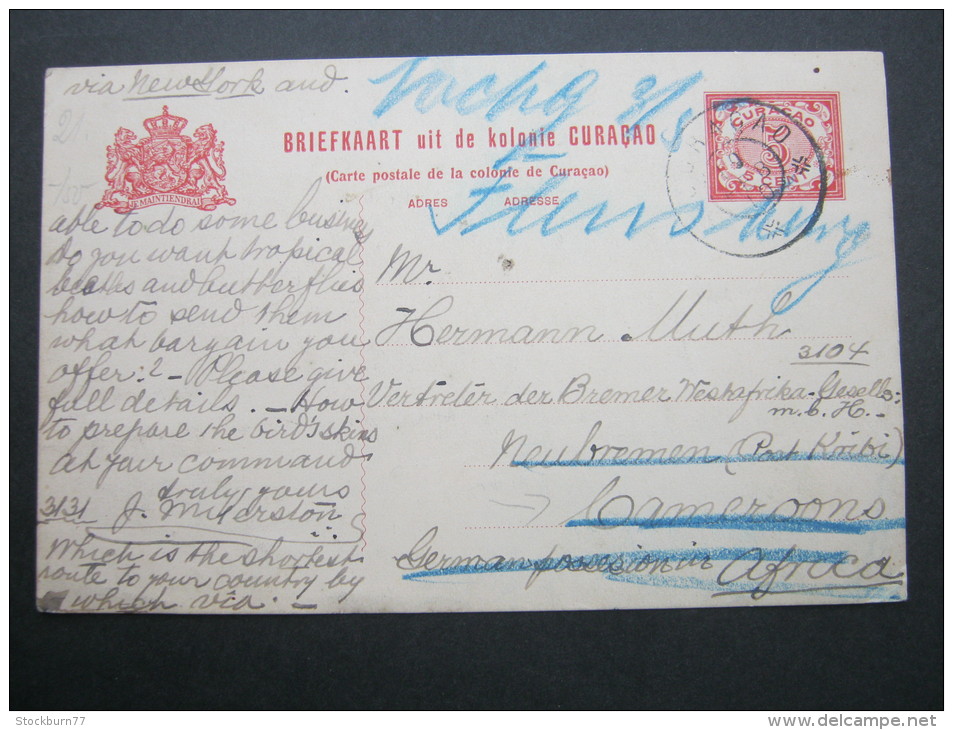 via New York and.
Nachg 3/5
Flensburg
BRIEFKAART uit de kolonie CURAÇAO
(Carte postale de la colonie de Curaçao)
ADRES ADRESSE
CURAÇAO
5
JE MAINTIENDRAI
able to do some business
Do you want tropical
beatles and butterflies
how to send them
what bargain you
offer:? – Please give
full details. – How
to prepare the birdskins
at your command
truly yours
3131 J.
Which is the shortest
route to your country by
which via. –
Mr.
Hermann Muth
3104
Vertreter der Bremer Westafrika-Gesells:
m.b.H. -
Neubremen (Post Kribi)
Cameroons
German possesion in Africa
Stockburn77
www.delcampe.net